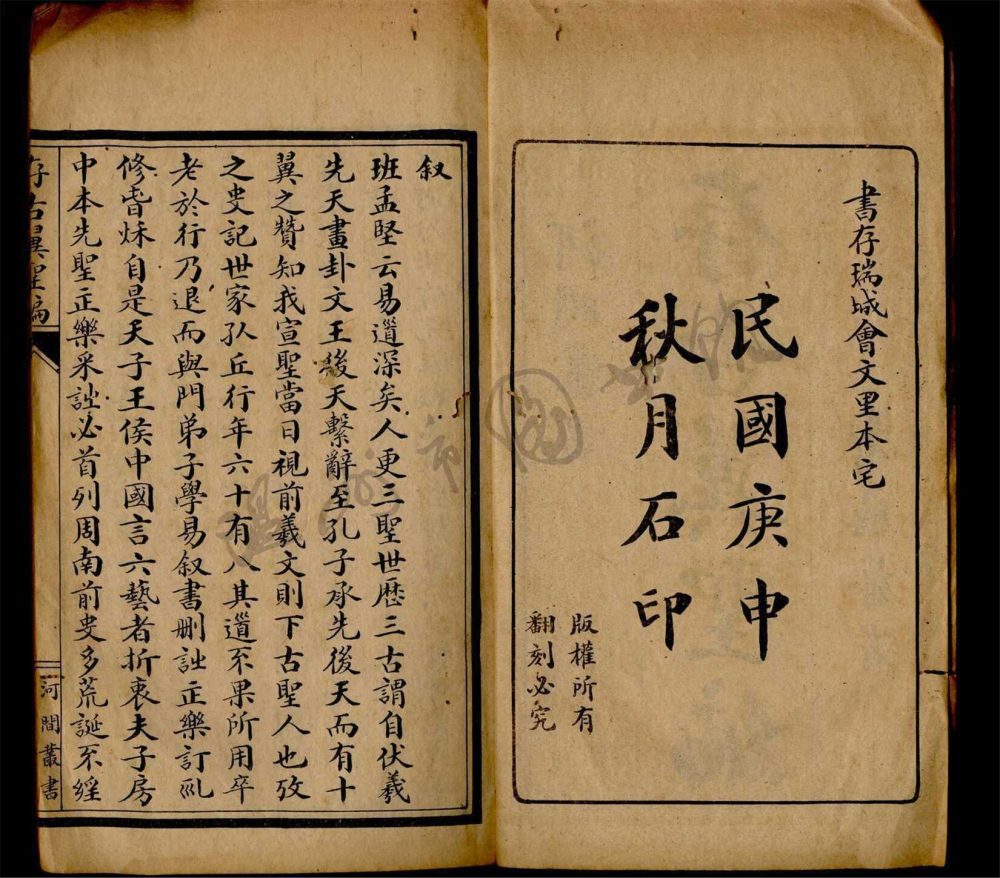 書存瑞城會文里本宅
民國庚申
秋月石印
版權所有
翻刻必究
叙
班孟堅云易道深矣人更三聖世歷三古謂自伏羲
先天畫卦文王後天繫辭至孔子承先後天而有十
翼之贊知我宣聖當日視前羲文則下古聖人也攷
之史記世家孔丘行年六十有八其道不果所用卒
老於行乃退而與門弟子學易叙書删詩正樂訂礼
修旾秋自是天子王侯中國言六藝者折衷夫子房
中本先聖正樂采詩必首列周南前史多荒誕不經
存古翼聖編
河間叢書